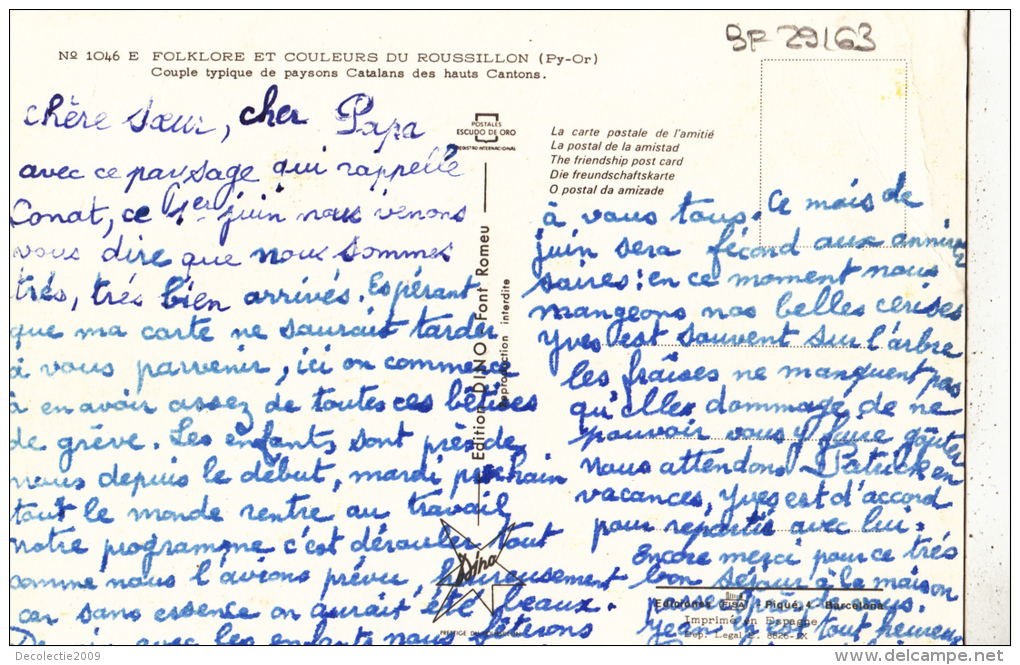 BF 29163
Nº 1046 E FOLKLORE ET COULEURS DU ROUSSILLON (Py-Or)
Couple typique de paysons Catalans des hauts Cantons.
chère sœur, cher Papa
avec ce paysage qui rappelle
Conat, ce 1er juin nous venons
vous dire que nous sommes
très, très bien arrivés. Espérant
que ma carte ne saurait tarder
à vous parvenir, ici on commence
à en avoir assez de toutes ces bêtises
de grève. Les enfants sont près de
nous depuis le début, mardi prochain
tout le monde rentre au travail
notre programme c'est dérouler tout
comme nous l'avions prévu, heureusement
car sans essence on aurait été beaux.
avec les enfants nous fêterons
POSTALES
ESCUDO DE ORO
REGISTRO INTERNACIONAL
Edition DINO Font Romeu
reproduction interdite
Dino
La carte postale de l'amitié
La postal de la amistad
The friendship post card
Die freundschaftskarte
O postal da amizade
à vous tous. Ce mois de
juin sera fécond aux anniver
saires: en ce moment nous
mangeons nos belles cerises
Yves est souvent sur l'arbre
les fraises ne manquent pas
qu'elles dommage de ne
pouvoir vous y faire goûter
nous attendons Patrick en
vacances, Yves est d'accord
pour repartir avec lui.
Encore merci pour ce très
bon séjour à la maison
Ediciones FISA - Piqué, 4 - Barcelona
Imprimé en Espagne
tout heureux
Delcampe.net
Collection of "Decolectie2009"